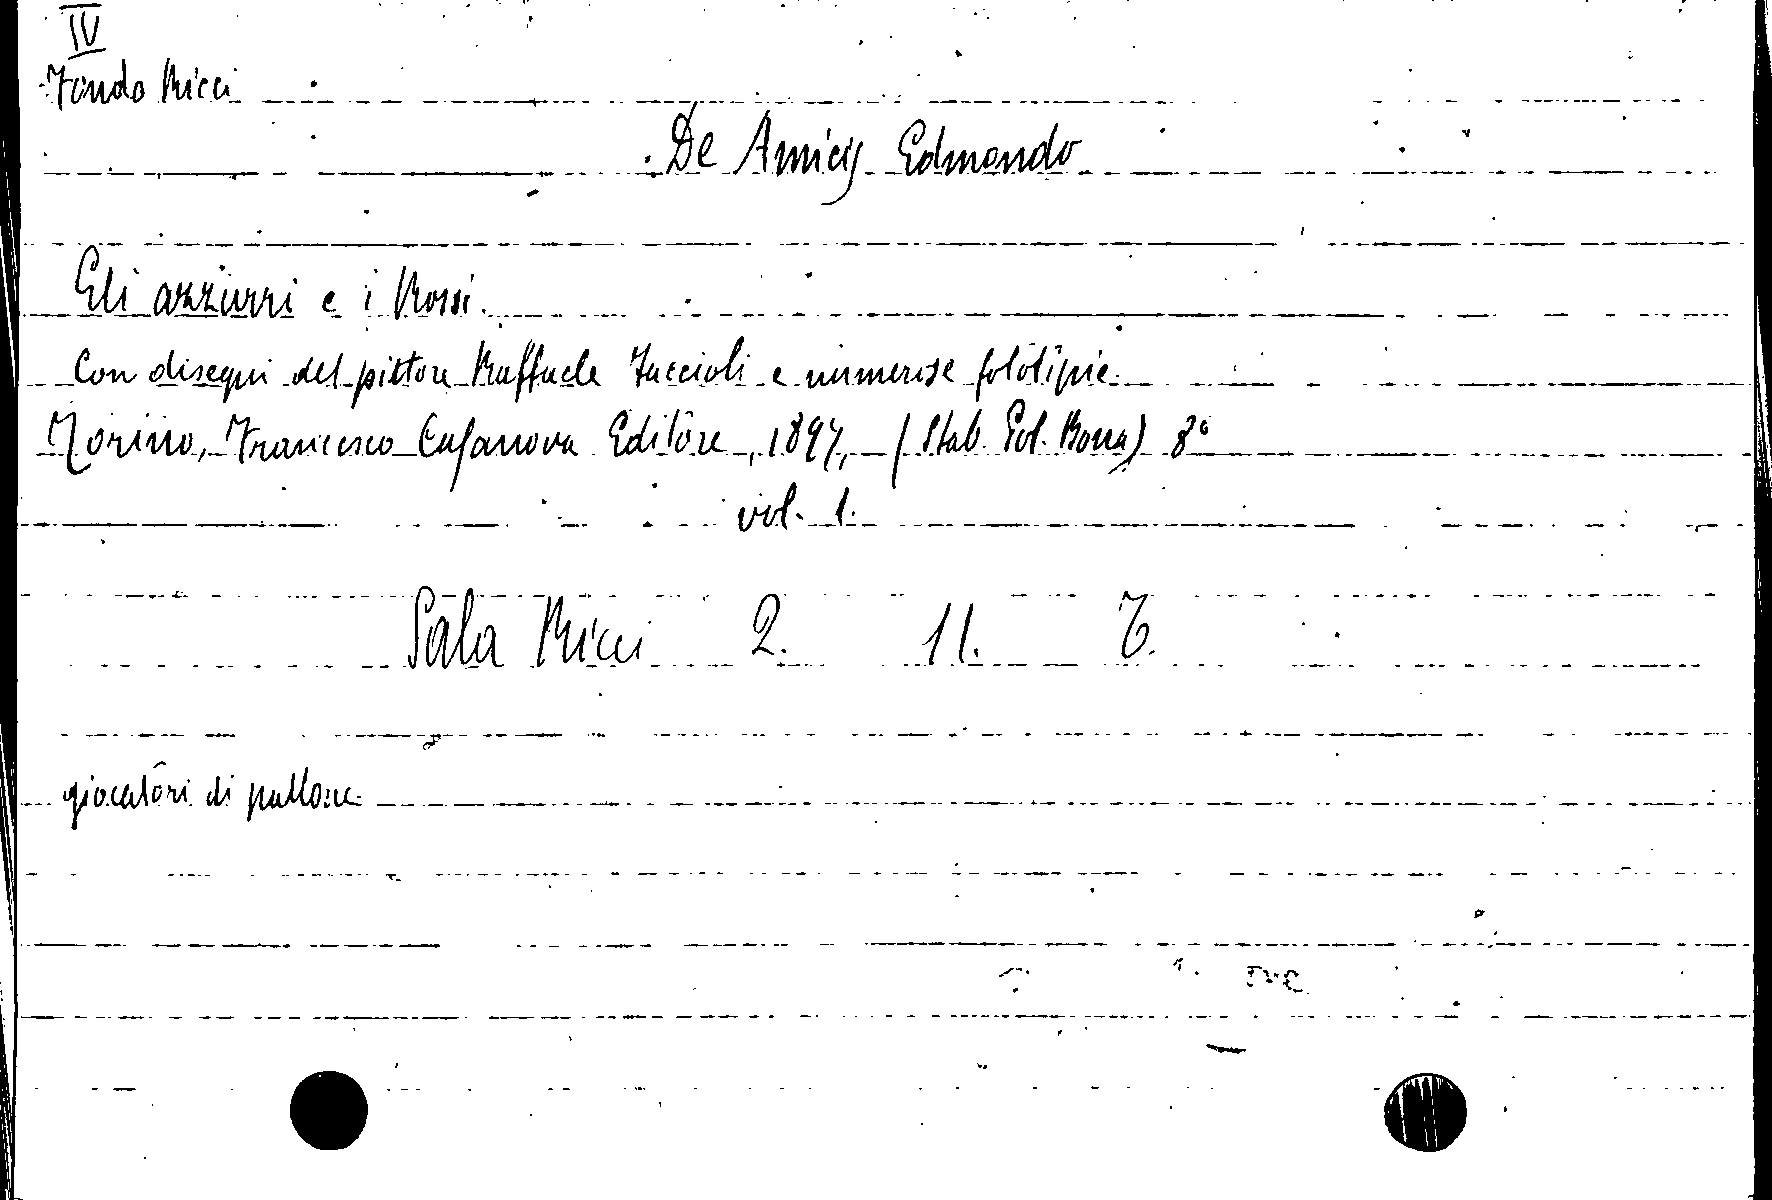 IV
Fondo Ricci
De Amicis Edmondo
Gli azzurri e i Rossi.
Con disegni del pittore Raffaele Faccioli e numerose fototipie.
Torino, Francesco Casanova Editore, 1897, (Stab. Fot. Bona) 8°
vol. 1.
Sala Ricci 2. 11. 7.
giocatori di pallone